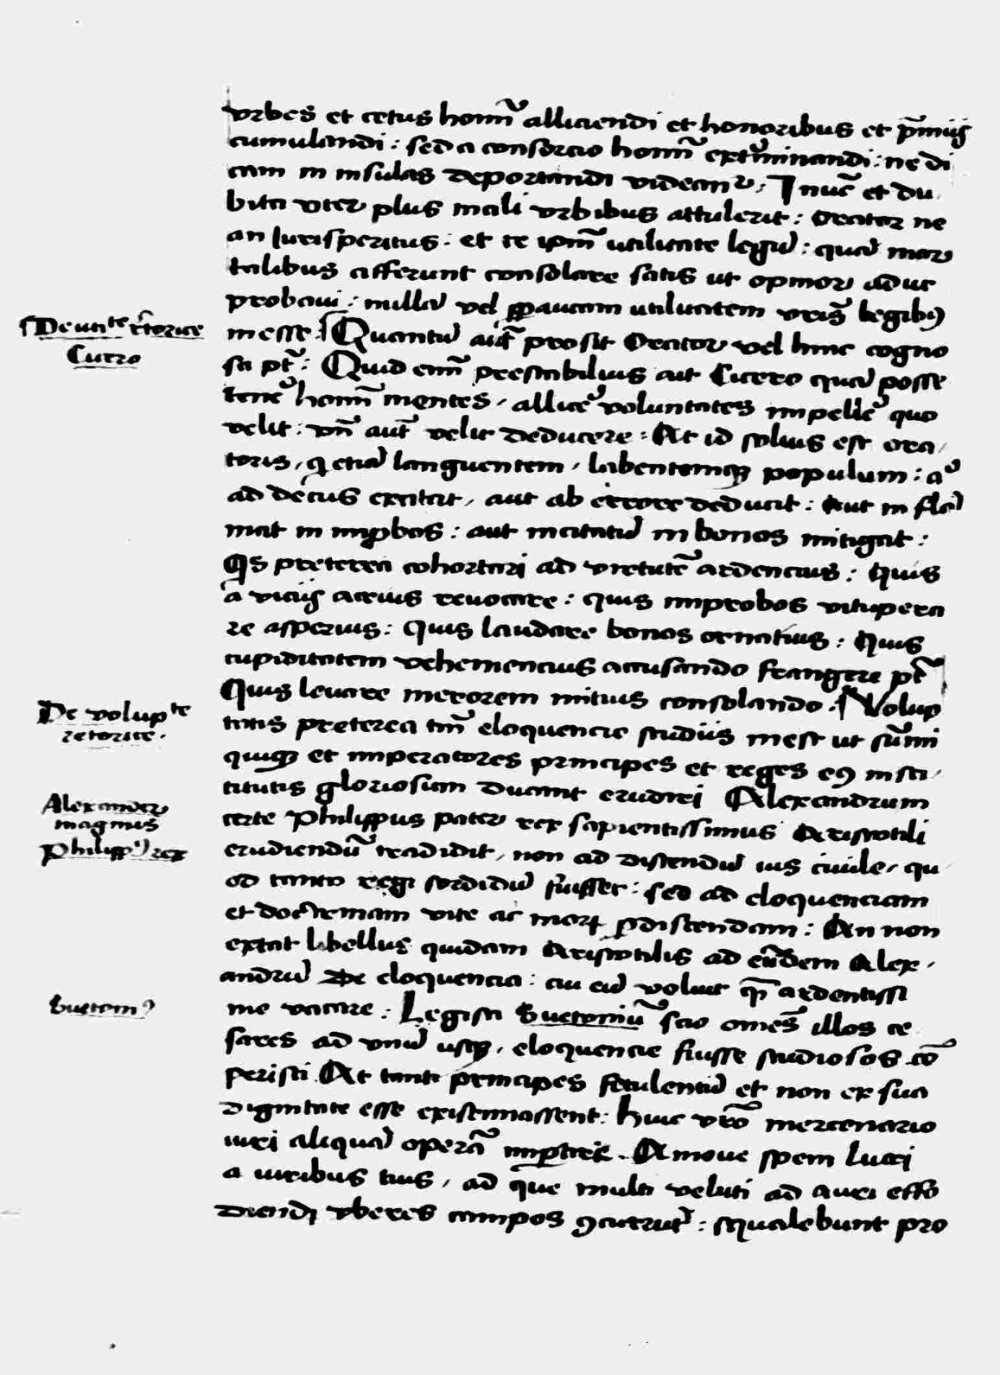 vrbes et cetus hominũ alliciendi et honoribus et p̃miis
cumulandi : sed a consorcio hominũ exterminandi : ne di
cam in insulas deportandi videant᷑ : I nunc̃ et du
bita vter plus mali vrbibus attulerit : Orator ne
an Iurisperitus : et te ipm̃ utilitate legũ : quã mor
talibus afferunt consolare satis ut opinor adue
probaui : nullã vel ꝑpaucam utilitatem vris̃ legibꝰ
inesse. Quantũ aũt prosit Orator vel hinc cogno
sci pt̃ : Quid em̃ prestabilius ait Cicero quã posse
tene᷑ hominũ mentes, allice᷑ voluntates impelle᷑ quo
velit : vñ aut̃ velit deducere : At id solius est ora
toris, qͥ etiã languentem, labentemqꝫ populum : a᷑
ad decus excitat, aut ab errore deducit : Aut in flã
mat in improbos : aut incitatũ in bonos mitigat :
Qͥs preterea cohortari ad virtutẽ ardencius : Quis
a viciis acrius reuocare : quis improbos vitupera
re asperius : Quis laudare bonos ornatius : Quis
cupiditatem vehemencius accusando frangere pt̃
Quis leuare merorem mitius consolando. Volup
tatis preterea tm̃ eloquencie studiis inest ut sũmi
quiqꝫ et imperatores principes et reges eꝰ insti
titutis gloriosum ducant erudiri Alexandrum
certe Philippus pater rex sapientissimus Aristotili
erudiendũ tradidit, non ad discendũ ius ciuile, qu
od tanto regi sordidũ fuisset : sed ad eloquenciam
et doctrinam vite ac morꝝ ꝑdiscendam : An non
extat libellus quidam Aristotilis ad eũdem Alex
andrũ de eloquencia : cui eũ voluit qͣ̃ ardentissi
me vacare : Legisti Suetoniũ scio omẽs illos ce
sares ad vnũ usqꝫ, eloquencie fuisse studiosos cõ
peristi At tanti principes fetulentũ et non ex sua
dignitate esse existimassent : huic vro᷑ mercenario
iuri aliquã operã impartiri. Amoue spem lucri
a viribus tuis, ad que multi veluti ad auri effo
diendi vberes campos ꝯcurrũt : squalebunt pro
De utiᵗᵉ rẽtorice
Cicero
De volupᵗᵉ
retorice.
Alexander
magnus
Philippꝰ rex
Suetoniꝰ